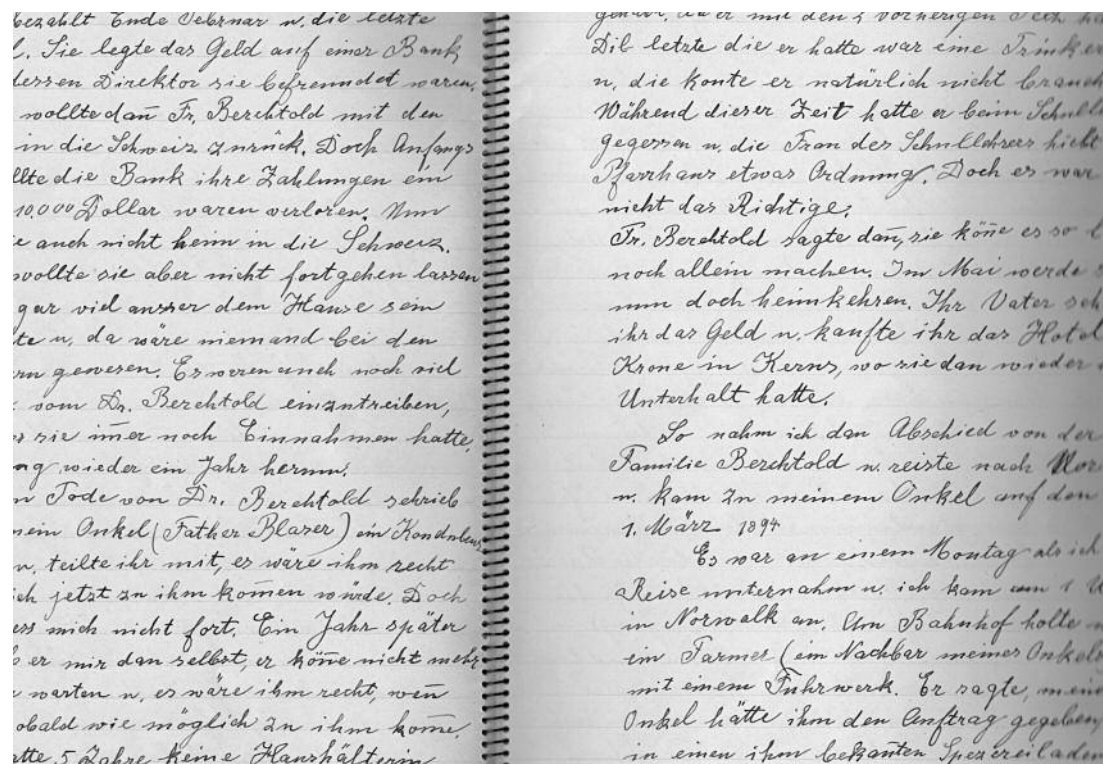 bezahlt Ende Februar u. die letzte
l. Sie legte das Geld auf einer Bank,
dessen Direktor sie befreundet waren.
wollte dan̄ Fr. Berchtold mit den
in die Schweiz zurück. Doch Anfangs
llte die Bank ihre Zahlungen ein
10,000 Dollar waren verloren. Nun
e auch nicht heim in die Schweiz.
wollte sie aber nicht fortgehen lassen
gar viel ausser dem Hause sein
te u. da wäre niemand bei den
rn gewesen. Es waren auch noch viel
vom Dr. Berchtold einzutreiben,
s sie im̄er noch Einnahmen hatte,
ng wieder ein Jahr herum.
n Tode von Dr. Berchtold schrieb
mein Onkel (Father Blaser) ein Kondulenz
u. teilte ihr mit, es wäre ihm recht
ich jetzt zu ihm kom̄en würde. Doch
ess mich nicht fort. Ein Jahr später
b er mir dan selbst, er kön̄e nicht mehr
r warten u. es wäre ihm recht, wen̄
obald wie möglich zu ihm kom̄e.
atte 5 Jahre keine Haushälterin
er mit den 2 vorherigen Pech
Di letzte die er hatte war eine Trinker
u. die konte er natürlich nicht brauch
Während dieser Zeit hatte er beim Schull
gegessen u. die Frau des Schullehrers hielt
Pfarrhaus etwas Ordnung. Doch es war
nicht das Richtige.
Fr. Berchtold sagte dan̄, sie kön̄e es so
noch allein machen. Im Mai werde
nun doch heimkehren. Ihr Vater sch
ihr das Geld u. kaufte ihr das Hotel
Krone in Kerns, wo sie dan wieder
Unterhalt hatte.
So nahm ich dan Abschied von der
Familie Berchtold u. reiste nach Nor
u. kam zu meinem Onkel auf den
1. März 1894
Es war an einem Montag als ich
Reise unternahm u. ich kam um 1 U
in Norwalk an. Am Bahnhof holte
ein Farmer (ein Nachbar meines Onkels
mit einem Fuhrwerk. Er sagte, mein
Onkel hätte ihm den Auftrag gegeben,
in einen ihm bekan̄ten Spezereiladen